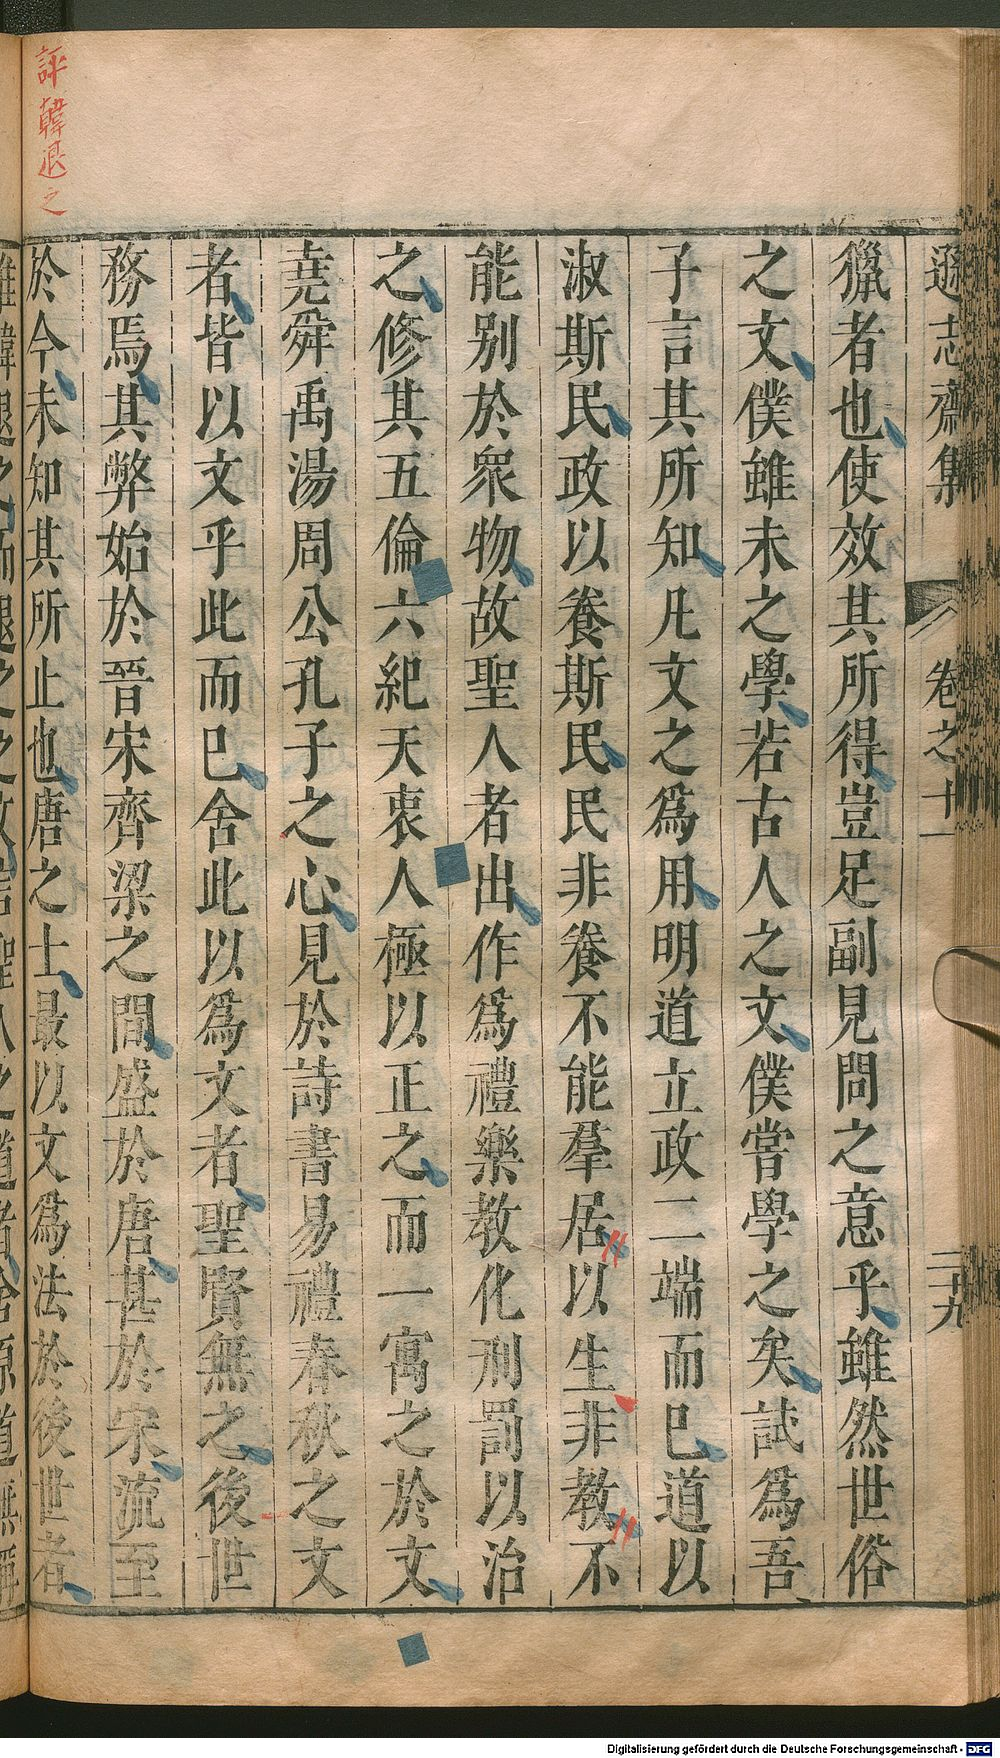 遜志齋集 卷之十一 二十九
獵者也使效其所得豈足副見問之意乎雖然世俗
之文僕雖未之學若古人之文僕嘗學之矣試爲吾
子言其所知凡文之爲用明道立政二端而已道以
淑斯民政以養斯民民非養不能羣居以生非教不
能别於衆物故聖人者出作爲禮樂教化刑罰以治
之修其五倫六紀天衷人極以正之而一寓之於文
堯舜禹湯周公孔子之心見於詩書易禮春秋之文
者皆以文乎此而已舍此以爲文者聖賢無之後世
務焉其弊始於晉宋齊梁之間盛於唐甚於宋流至
於今未知其所止也唐之士最以文爲法於後世者
評韓退之
惟韓退之而退之之故言聖人之道者舍原道無稱
Digitalisierung gefördert durch die Deutsche Forschungsgemeinschaft - DFG